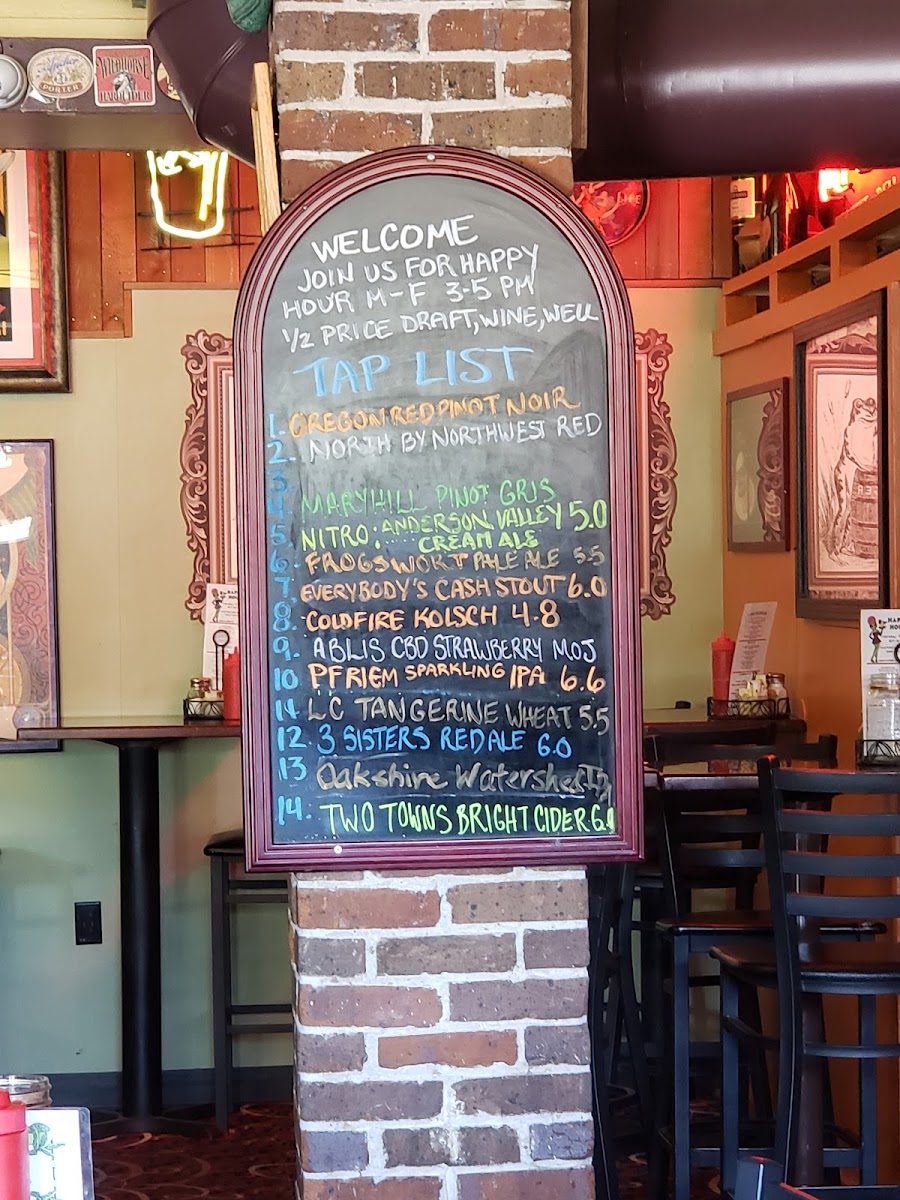 PORTER
WILDHORSE
WELCOME
JOIN US FOR HAPPY
HOUR M-F 3-5 PM
1/2 PRICE DRAFT, WINE, WELL
TAP LIST
1. OREGON RED PINOT NOIR
2. NORTH BY NORTHWEST RED
3.
4. MARYHILL PINOT GRIS
5. NITRO: ANDERSON VALLEY 5.0
CREAM ALE
6. FROGSWORT PALE ALE 5.5
7. EVERYBODY'S CASH STOUT 6.0
8. COLDFIRE KOLSCH 4.8
9. ABLIS CBD STRAWBERRY MOJ
10 PFRIEM SPARKLING IPA 6.6
11. LC TANGERINE WHEAT 5.5
12. 3 SISTERS RED ALE 6.0
13 Oakshire Watershed
14. TWO TOWNS BRIGHT CIDER